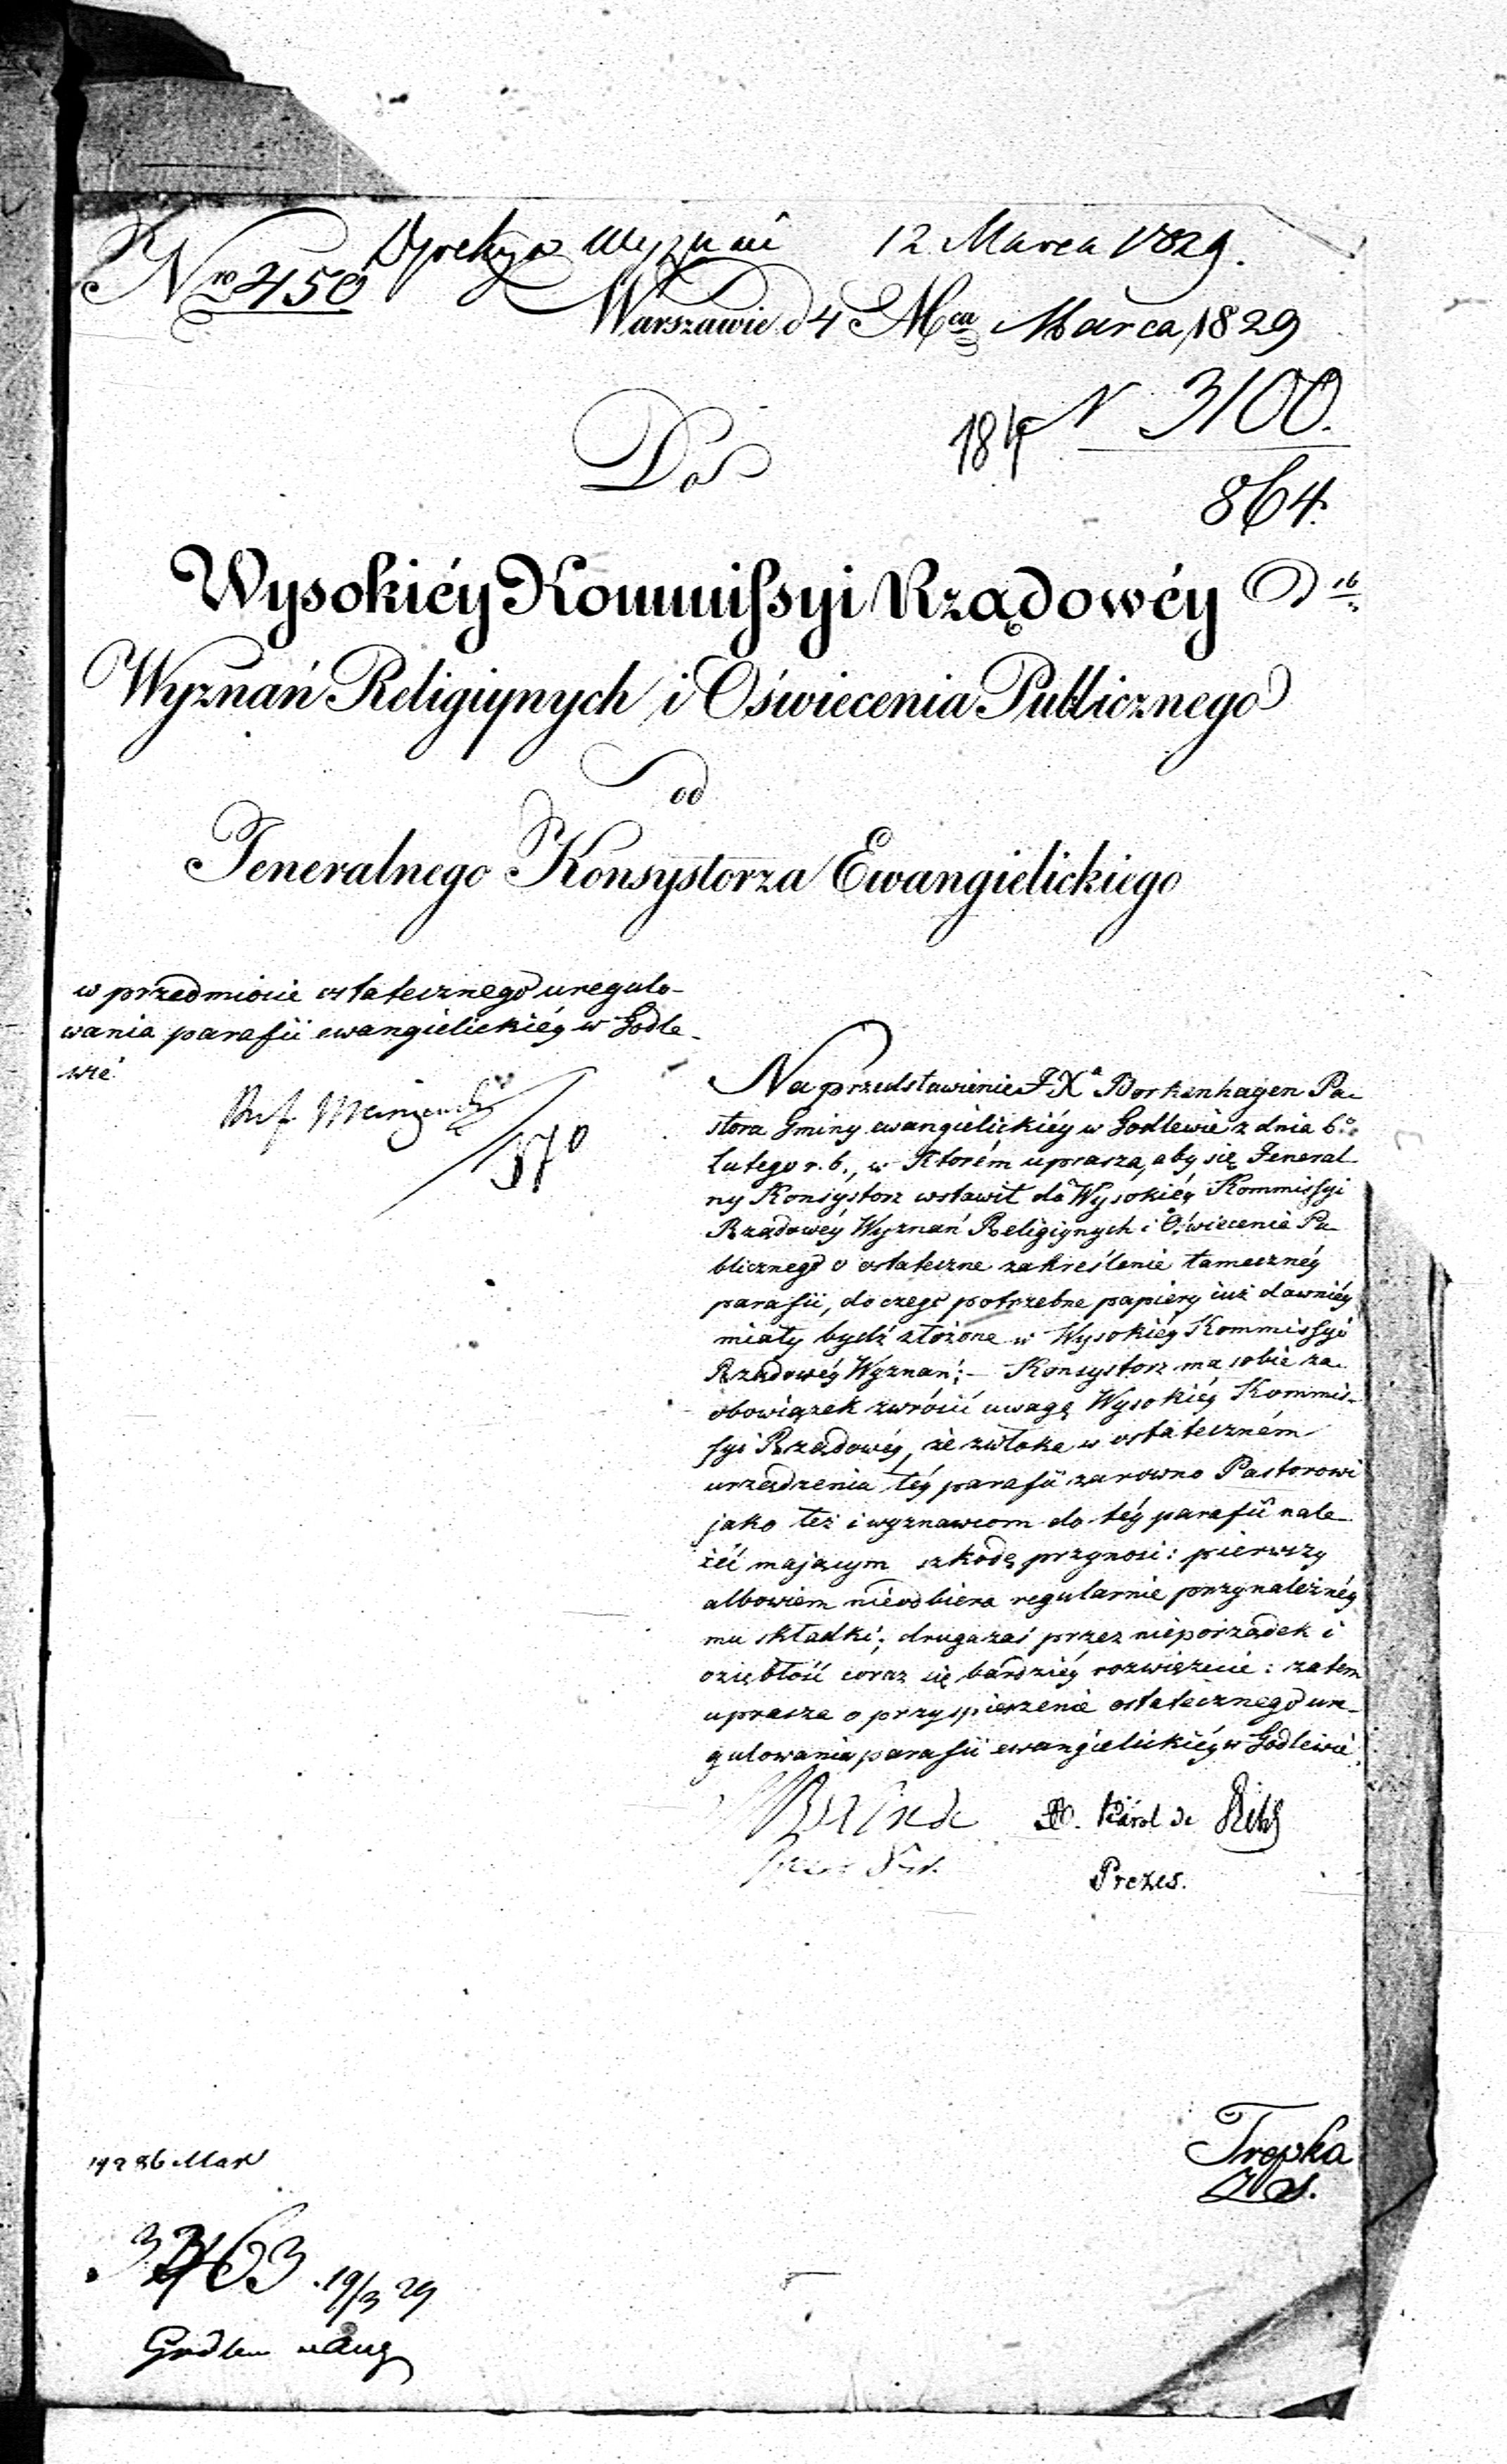 Dyrekcya Wyznań 12 Marca 1829.
Nro 450
Warszawie d 4 Mca Marca 1829
N 3100.
Do
864.
Wysokiéy Kommissyi Rządowéy
Wyznań Religiynych i Oświecenia Publicznego
od
Jeneralnego Konsystorza Ewangielickiego
w przedmiocie ostatecznego uregulo-
wania parafii ewangielickiéy w Godle-
wie
Na przedstawienie JXa Borkenhagen Pa-
stora Gminy ewangielickiéy w Godlewie z dnia 6o
Lutego r. b., w którém uprasza, aby się Jeneral-
ny Konsystorz wstawił do Wysokiéy Kommissyi
Rządowéy Wyznań Religiynych i Oświecenia Pu-
blicznego o ostateczne zakreślenie tameczney
parafii, do czego potrzebne papiery iuż dawniéy
miały bydź złożone w Wysokiéy Kommissyi
Rządowéy Wyznań; – Konsystorz ma sobie za
obowiązek zwrócić uwagę Wysokiéy Kommis-
syi Rządowéy, że zwłoka w ostateczném
urządzeniu téy parafii zarowno Pastorowi
jako też i wyznawcom do téy parafii nale-
żéć mającym szkodę przynosi: pierwszy
albowiem nieodbiera regularnie przynależnéy
mu składki; druga zaś przez nieporządek i
oziębłość coraz się bardziéy rozwięzuie: zatem
uprasza o przyspieszenie ostatecznego ure-
gulowania parafii ewangielickiéy w Godlewie.
Karol de
Prezes.
Trepka
3463 19/3 29